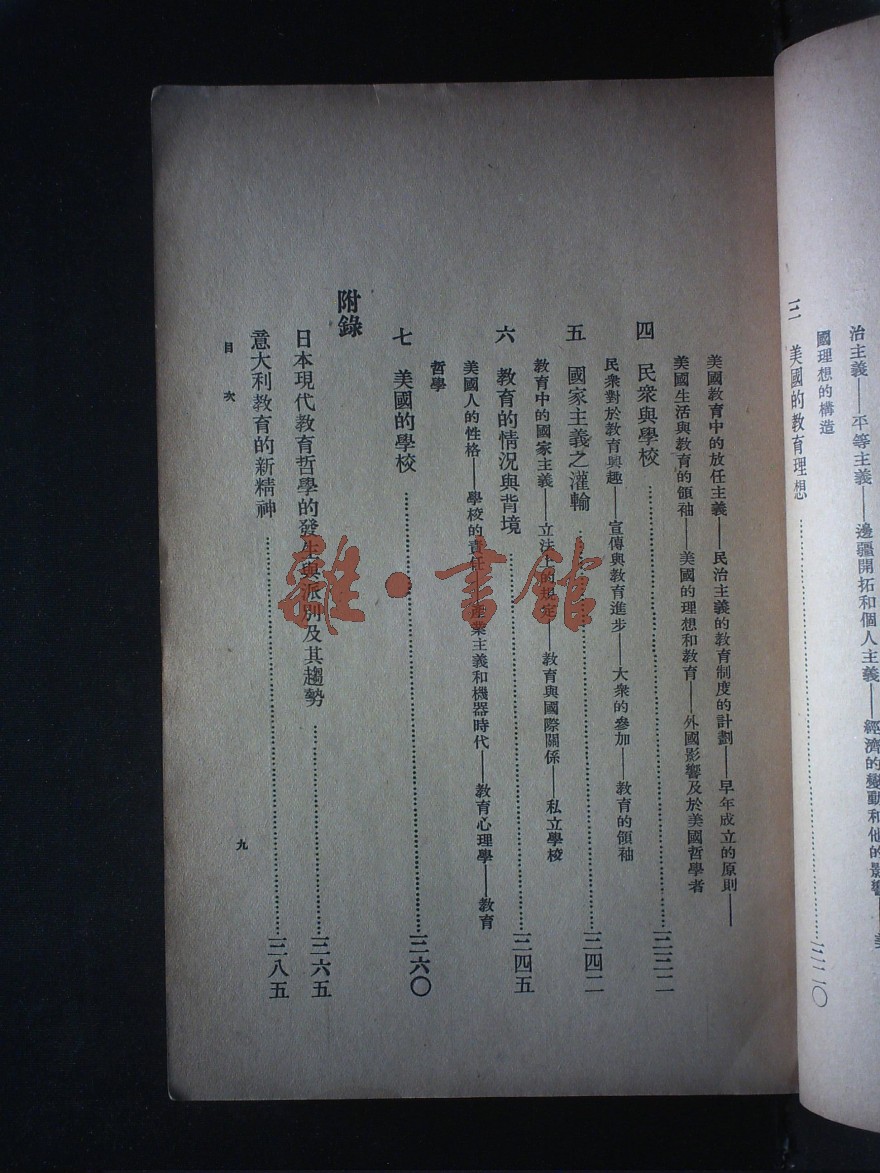 治主義——平等主義——邊疆開拓和個人主義——經濟的變動和他的影響——美
國理想的構造
三　美國的教育理想……三二〇
美國教育中的放任主義——民治主義的教育制度的計劃——早年成立的原則——
美國生活與教育的領袖——美國的理想和教育——外國影響及於美國哲學者
四　民衆與學校……三三二
民衆對於教育興趣——宣傳與教育進步——大衆的參加——教育的領袖
五　國家主義之灌輸……三四二
教育中的國家主義——立法上的規定——教育與國際關係——私立學校
六　教育的情況與背境……三四五
美國人的性格——學校的責任——產業主義和機器時代——教育心理學——教育
哲學
七　美國的學校……三六〇
附錄
日本現代教育哲學的發生與派別及其趨勢……三六五
意大利教育的新精神……三八五
目次
九
雜·書館